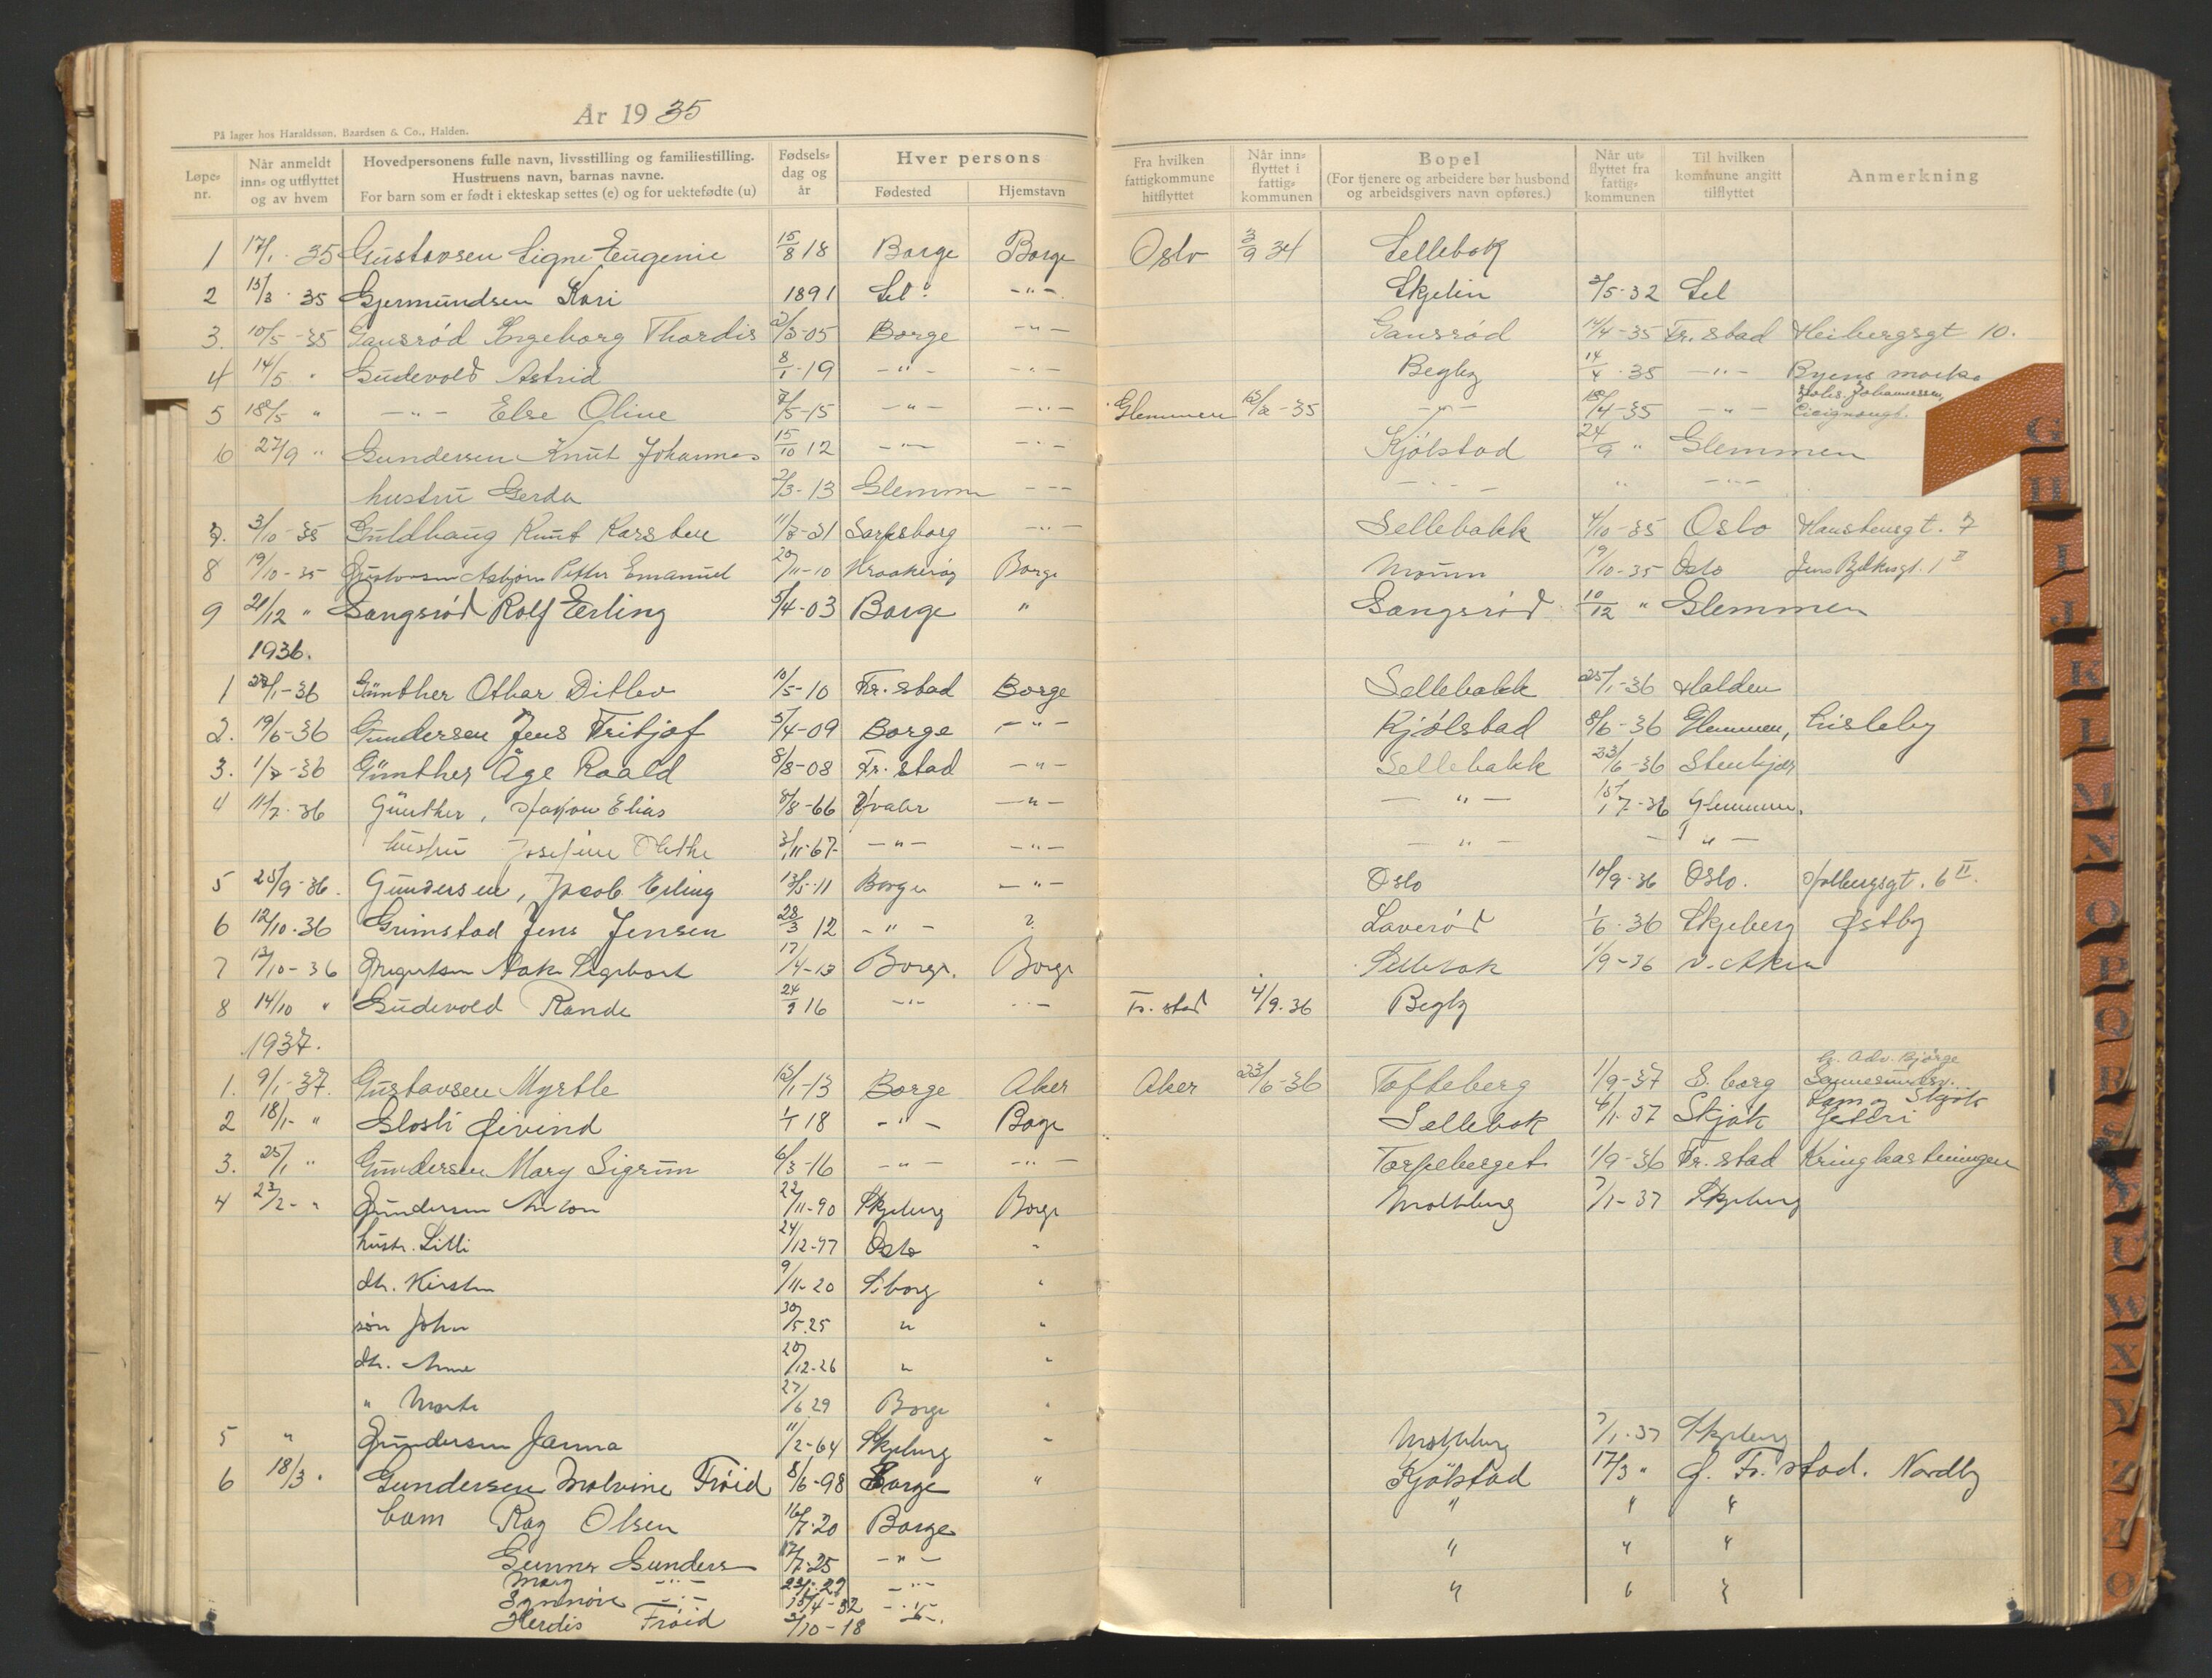 År 1935
På lager hos Haraldsson, Baardsen & Co., Halden.
Løpe-nr. | Når anmeldt inn- og utflyttet og av hvem | Hovedpersonens fulle navn, livsstilling og familiestilling. Hustruens navn, barnas navne. For barn som er født i ekteskap settes (e) og for uektefødte (u) | Fødsels-dag og år | Hver persons Fødested | Hjemstavn | Fra hvilken fattigkommune hitflyttet | Når inn-flyttet i fattig-kommunen | Bopel (For tjenere og arbeidere bør husbond og arbeidsgivers navn opføres.) | Når ut-flyttet fra fattig-kommunen | Til hvilken kommune angitt tilflyttet | Anmerkning
1 17/1 35 Gustavsen Signe Eugenie 15/8 18 Borge Borge Oslo 3/9 34 Sellebok
2 13/3 35 Gjermundsen Kari 1891 Sel -"- Skjelin 3/5-32 Sel
3. 10/5-35 Gansrød Ingeborg Thordis 2/3-05 Borge -"- Gansrød 14/4-35 Fr.stad Heibergsgt 10.
4 14/5 " Gudevold Astrid 8/1-19 -"- -"- Begby 14/4 35 -"- Byens marka
5 18/5 " -"- Else Oline 7/5-15 -"- -"- Glemmen -35 -"- /4-35 -"- Johs. Johannessen,
6 27/9 " Gundersen Knut Johannes 15/10 12 -"- -"- Kjölstad 24/9 " Glemmen
hustru Gerda 2/3-13 Glemmen -"- -"- " -"-
7. 3/10-35 Guldhaug Knut Karsten 11/7-21 Sarpsborg -"- Sellebakk 4/10-35 Oslo Haustensgt. 7
8 19/10-35 Gustavsen Asbjørn Petter Emanuel 20/11-10 Kraakerøy Borge Moum 19/10-35 Oslo Jens Bjelkesgt. 1 II
9 21/12 " Gangsrød Rolf Erling 5/4-03 Borge " Gangsrød 10/12 " Glemmen
1936.
1 27/1-36 Günther Othar Ditlev 10/5-10 Fr.stad Borge Sellebakk 25/1-36 Halden
2. 19/6-36 Gundersen Jens Fritjof 5/4-09 Borge -"- Kjølstad 8/6-36 Glemmen, Lisleby
3. 1/7-36 Günther Åge Roald 8/8-08 Fr.stad -"- Sellebakk 23/6-36 Stenkjær
4 11/7-36 Günther, Håkon Elias 8/8-66 Hvaler -"- -"- 15/7-36 Glemmen.
hustru Josefine Olethe 3/11-67 -"- -"- -"- -"-
5 25/9-36. Gundersen, Jacob Erling 13/5-11 Borge -"- Oslo 10/9-36 Oslo. Holbergsgt. 6 II.
6 12/10-36 Grimstad Jens Jensen 28/3 12 -"- ? Laverød 1/6-36 Skjeberg Østby
7 12/10-36 Gregertsen Aak Sigebort 17/4-13 Borge. Borge Sellebak 1/9-36 V. Aker
8 14/10 " Gudevold Rande 24/9 16 -"- -"- Fr.stad 4/9-36 Begby
1937.
1. 9/1-37. Gustavsen Myrtle 12/1-13 Borge Aker Aker 23/6-36 Tofteberg 1/9-37 S.borg b. Adv. Bjørge
2 18/1- " Glosli Øivind 1/1 18 -"- Borge Sellebok 4/1-37 Skjåk
3. 25/1 " Gundersen Mary Sigrun 6/3-16 -"- -"- Torpeberget 1/9-36 Fr.stad Kringkastningen
4 23/2- " Gundersen Anton 22/11-90 Skjeberg Borge Moltberg 7/1-37 Skjeberg
hustr. Lilli 24/12-97 Oslo "
dtr. Kirsten 9/11-20 S.borg "
søn John 30/5-25 " "
dtr. Anne 20/12-26 " "
" Marte 27/6 29 Borge "
5 " Gundersen Janna 11/2-64 Skjeberg " Moltberg 7/1-37 Skjeberg
6 18/3 " Gundersen Malvine Frøid 8/6-98 Borge " Kjölstad 17/3 " g. Fr.stad. Nordby
barn Rag Olsen 16/7-20 Borge " " "
Gunnar Gunders 17/7-25 -"- " " "
Mary -"- 23/1-29 -"- " " "
Synnøve -"- 15/4-32 -"-
Herdis Frøid 2/10-18 -"-
G H I J K L M N O P Q R S T U V W X Y Z Æ Ø